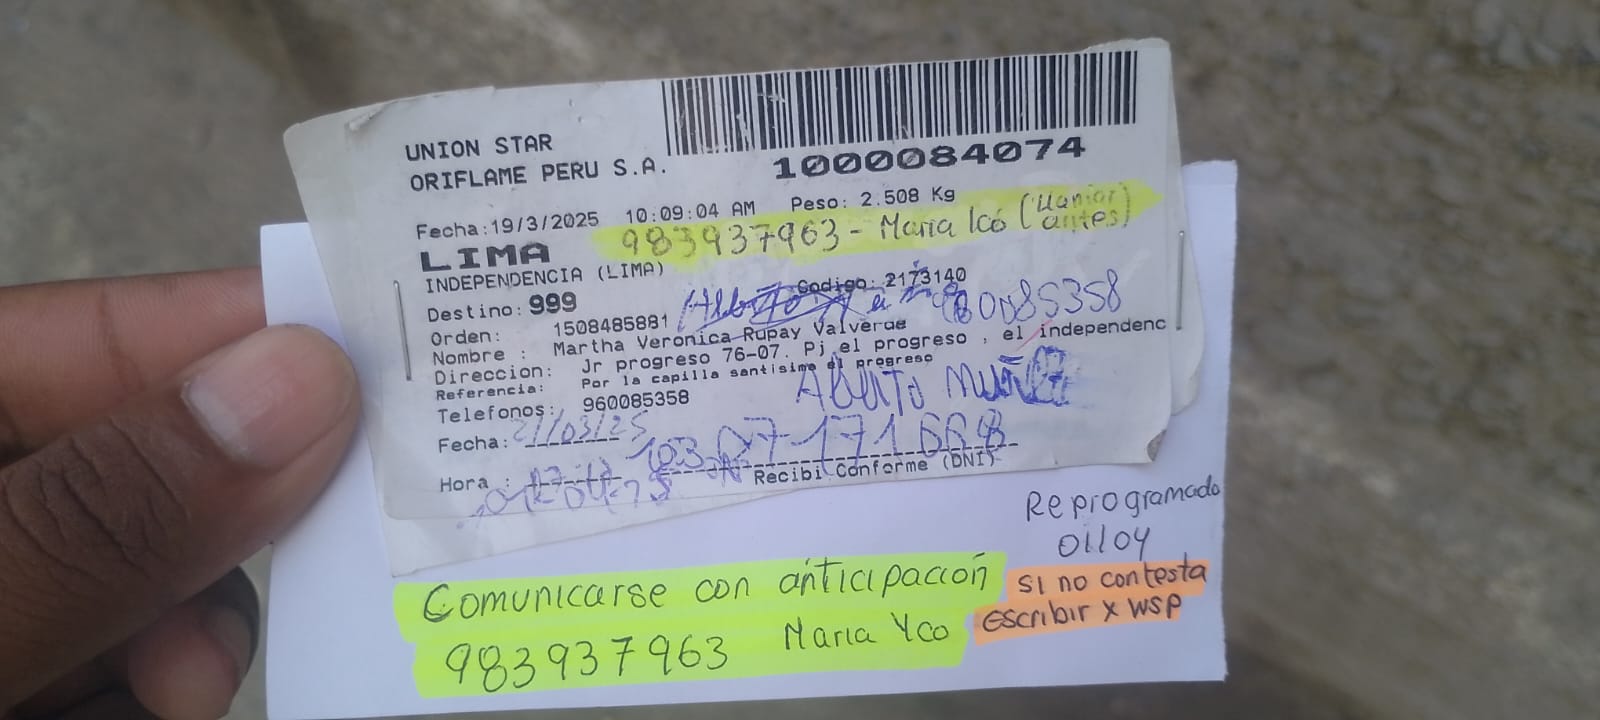 UNION STAR
ORIFLAME PERU S.A.
1000084074
Fecha:19/3/2025 10:09:04 AM Peso: 2.508 Kg
983937963 - Maria Icó (llamar antes)
LIMA
INDEPENDENCIA (LIMA)
Destino: 999 Codigo: 2173140
960085358
Orden: 1508485881
Nombre : Martha Veronica Rupay Valverde
Direccion: Jr progreso 76-07. Pj el progreso , el independenc
Referencia: Por la capilla santisima el progreso
Telefonos: 960085358
Alberto Muñoz
Fecha: 21/03/25
07171668
Hora :
Recibi Conforme (DNI)
Reprogramado
01/04
Comunicarse con anticipación
983937963 Maria Yco
si no contesta
escribir x wsp